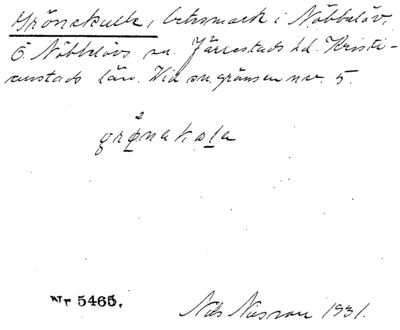 Grönekulle, betesmark i Nöbbelöv,
Ö. Nöbbelövs sn. Järrestads hd. Kristi-
anstads län. Vid sn.gränsen nr. 5.
2
grønakola
Nr 5465.
Nils 1931.